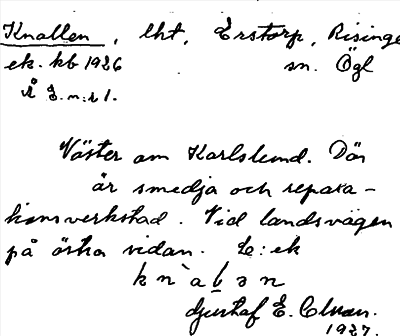 Knallen, lht, Erstorp, Risinge
ek. kb 1926 sn. Ögl
Väster om Karlslund. Där
är smedja och repara-
tionsverkstad. Vid landsvägen
på östra sidan. Le: ek
Gustaf E.
1927.